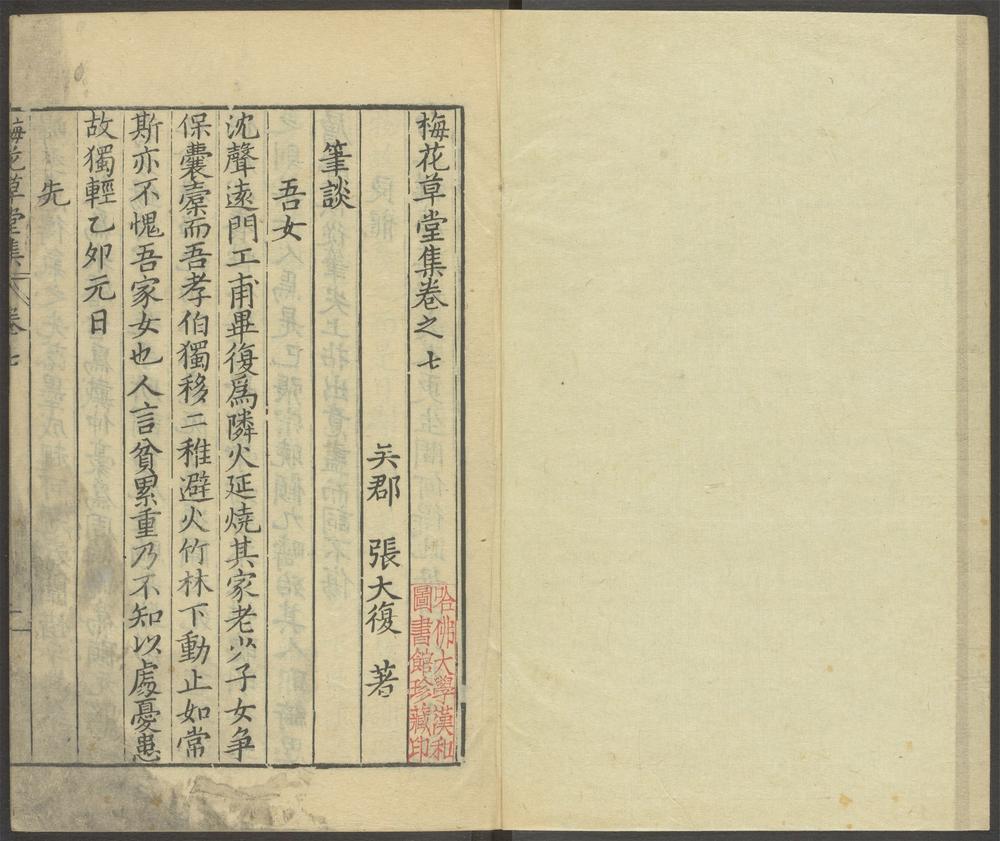 梅花草堂集卷之七
吳郡 張大復 著
筆談
吾女
沈聲遠門工甫畢復爲隣火延燒其家老少子女爭
保囊橐而吾孝伯獨移二稚避火竹林下動止如常
斯亦不愧吾家女也人言貧累重乃不知以處憂患
故獨輕乙夘元日
先
梅花草堂集 卷七 一
哈佛大學漢和
圖書館珍藏印